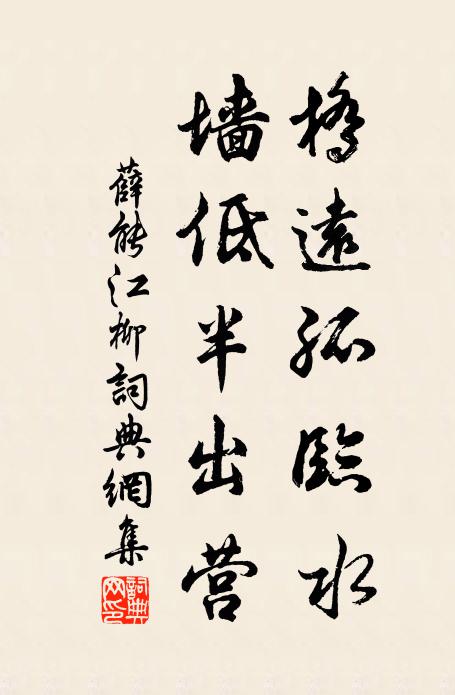 橋遠孤臨水
墙低半出营
薛能江柳詞典網集
詞典网印